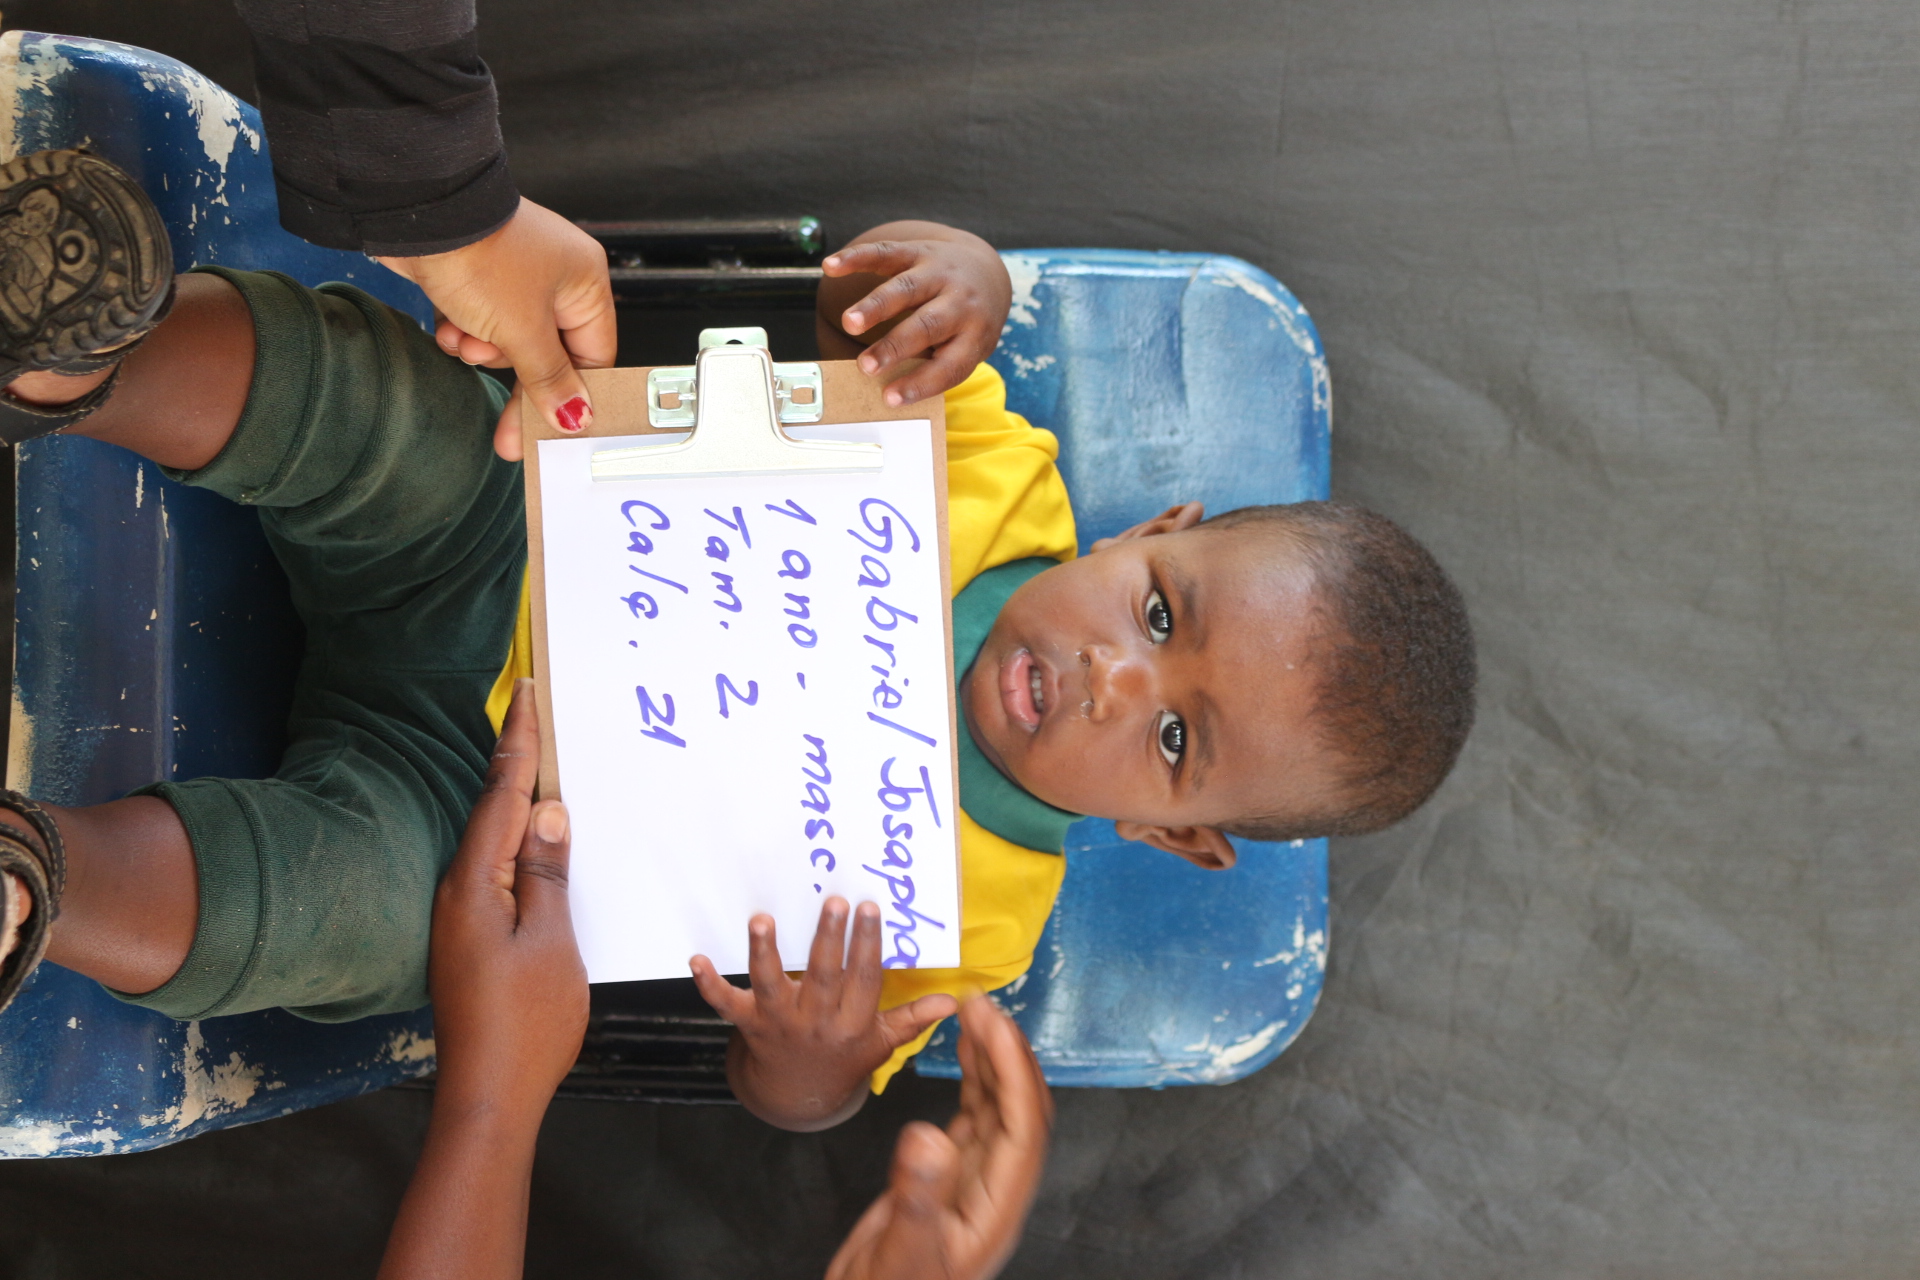 Gabriel Josapha
1 ano - masc.
Tam. 2
Calç. 21